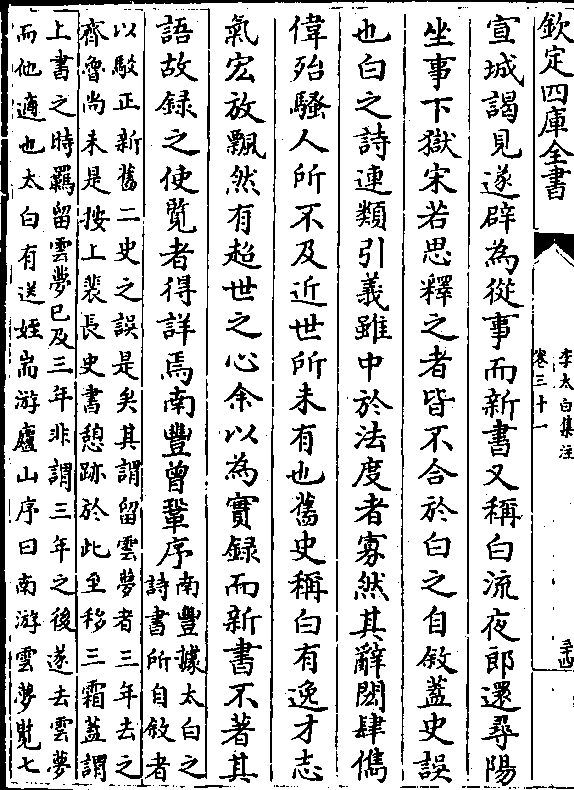 欽定四庫全書
李太白集注
卷三十一
三十四
宣城謁見遂辟為從事而新書又稱白流夜郎還尋陽
坐事下獄宋若思釋之者皆不合於白之自敘蓋史誤
也白之詩連類引義雖中於法度者寡然其辭閎肆儁
偉殆騷人所不及近世所未有也舊史稱白有逸才志
氣宏放飄然有超世之心余以為實録而新書不著其
語故録之使覽者得詳焉南豐曾鞏序
南豐據太白之
詩書所自敘者
以駮正新舊二史之誤是矣其謂留雲夢者三年去之
齊魯尚未是按上裴長史書憩跡於此至移三霜蓋謂
上書之時羈留雲夢已及三年非謂三年之後遂去雲夢
而他適也太白有送姪耑游廬山序曰南游雲夢覽七